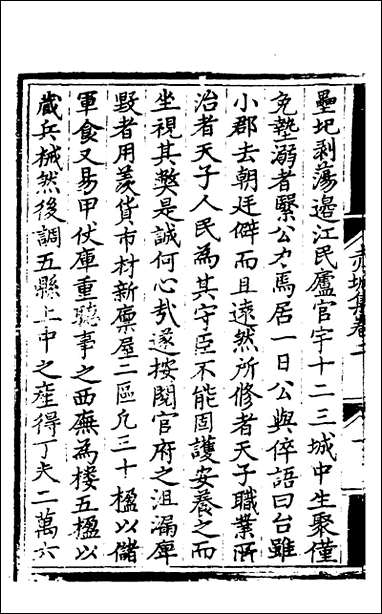 壘圯剥蕩邊江民廬官宇十二三城中生聚僅
免墊溺者緊公力焉居一日公與倅語曰台雖
小郡去朝廷僻而且遠然所修者天子職業所
治者天子人民為其守臣不能固護安養之而
坐視其弊是誠何心㢤遂按閱官府之沮漏庳
毀者用羨貨市材新廪屋二區凡三十楹以儲
軍食又易甲仗庫重聽事之西廡為樓五楹以
歲兵械然後調五縣上中之產得丁夫二萬六
赤城集卷二